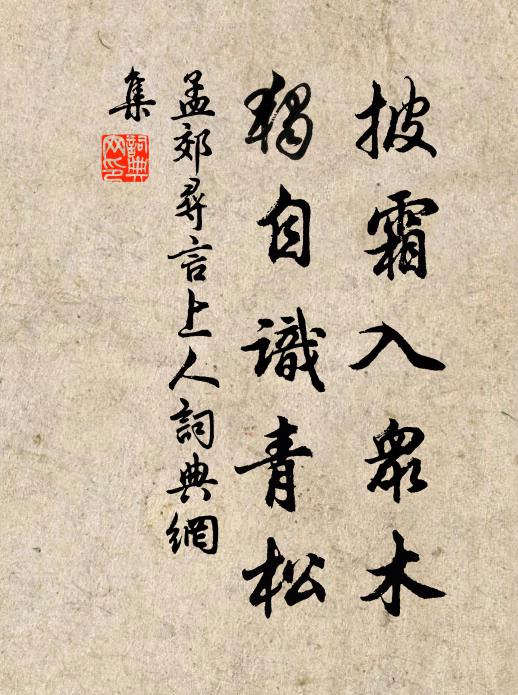 披霜入眾木
獨自識青松
孟郊尋言上人詞典網
集
詞典網印